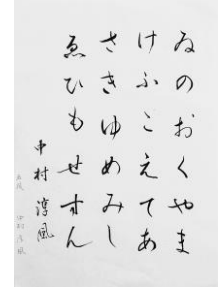 ゐのおくやま
けふこえてあ
さきゆめみし
ゑひもせすん
中村淳風
中村淳風